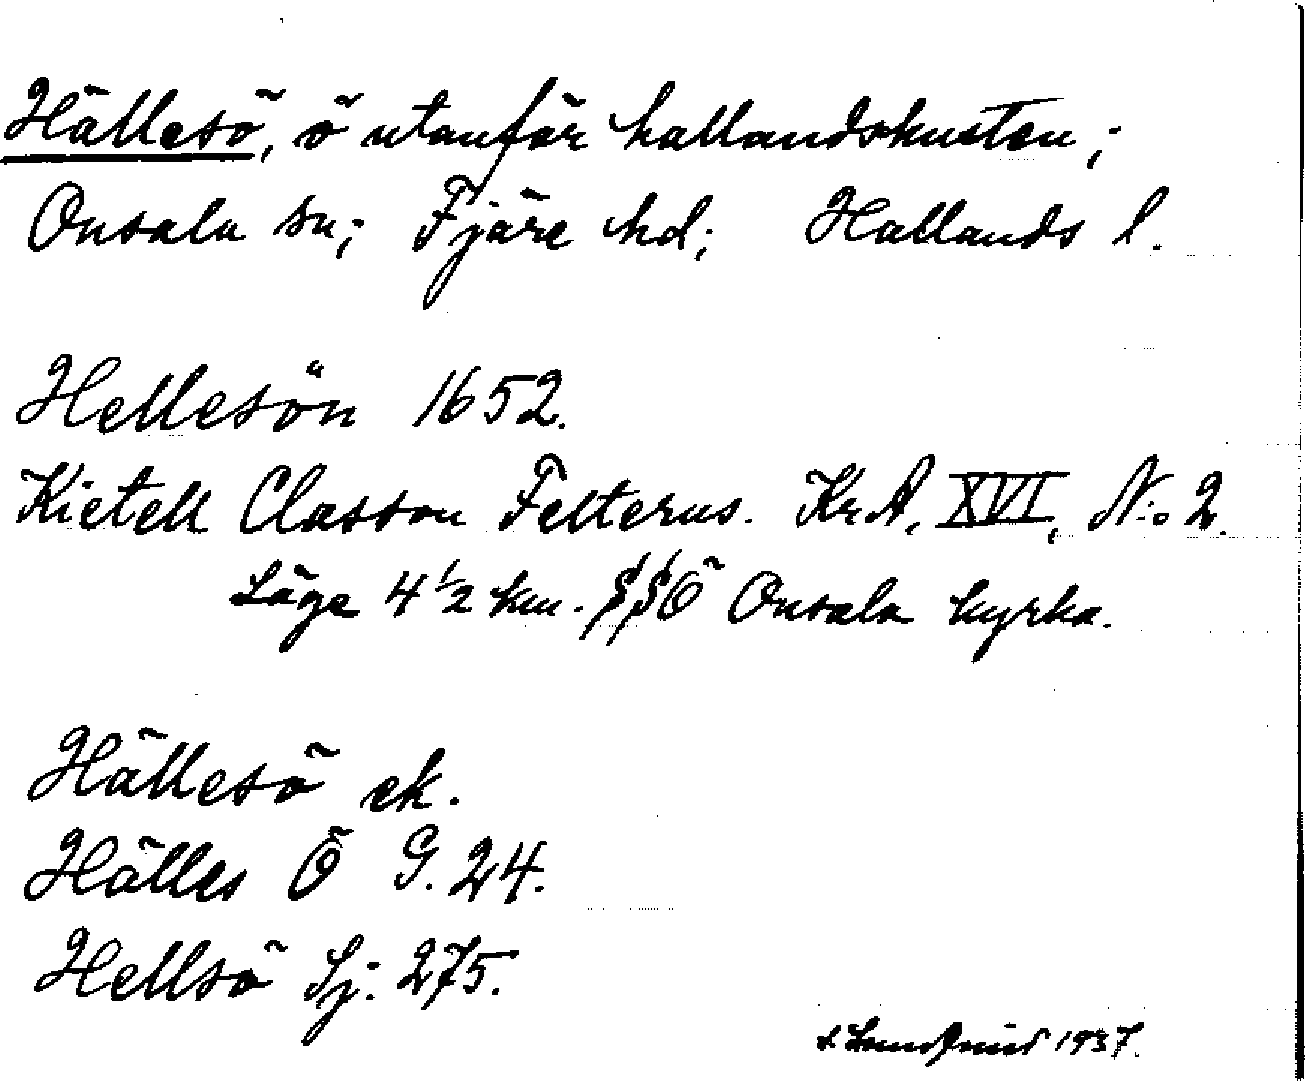 Hällesö, ö utanför hallandskusten;
Onsala sn; Fjäre hd; Hallands l.
Hellesön 1652.
Kietell Classon Felterus. Kr.A. XVI, N:o 2.
Läge 4 1/2 km. SSÖ Onsala kyrka.
Hällesö ek.
Hälles Ö G. 24.
Hellsö Sj. 275.
1937.